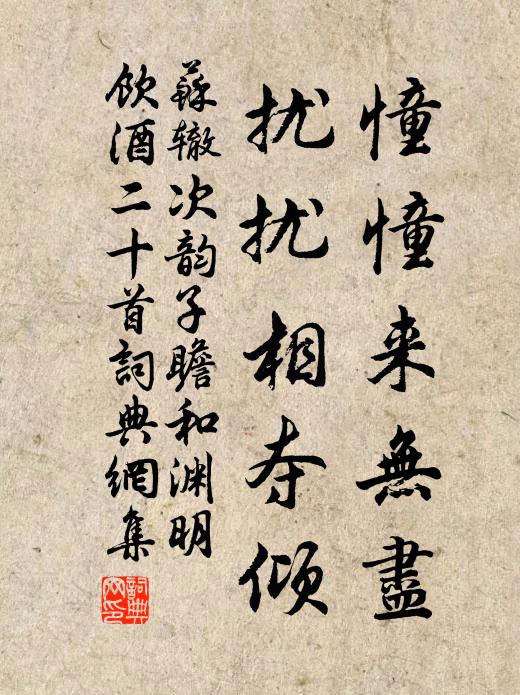 憧憧来無盡
扰扰相夺倾
蘇辙次韵子瞻和渊明
飲酒二十首詞典網集
詞典
网印